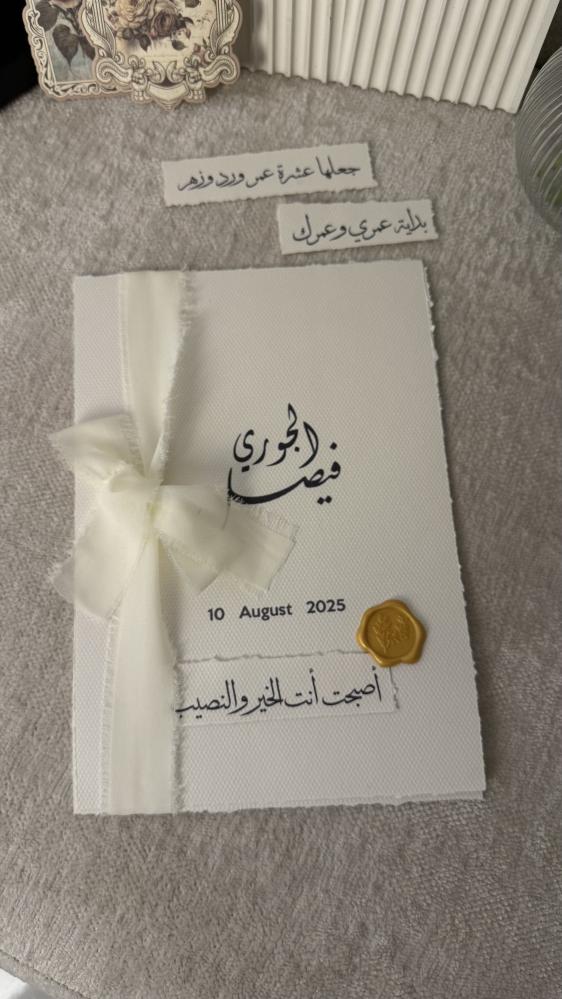 جعلها عشرة عمر ورد وزهر
بداية عمري وعمرك
الجوري
فيصل
10 August 2025
أصبحت أنت الخير والنصيب